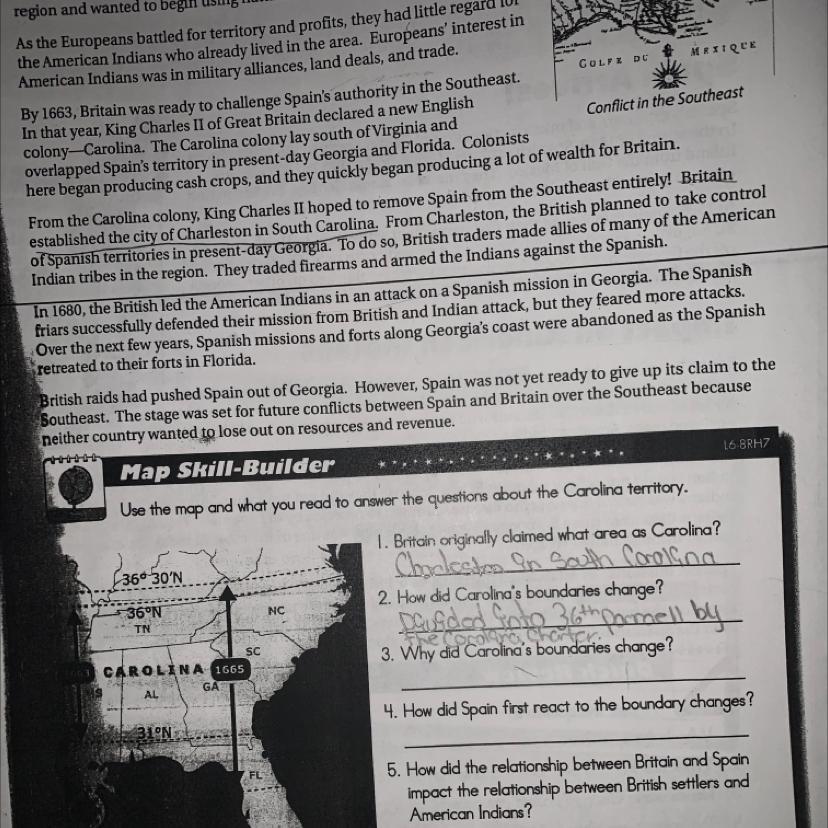 region and wanted to begin using
As the Europeans battled for territory and profits, they had little regard for
the American Indians who already lived in the area. Europeans' interest in
American Indians was in military alliances, land deals, and trade.
GOLFE DU MEXIQUE
Conflict in the Southeast
By 1663, Britain was ready to challenge Spain's authority in the Southeast.
In that year, King Charles II of Great Britain declared a new English
colony—Carolina. The Carolina colony lay south of Virginia and
overlapped Spain's territory in present-day Georgia and Florida. Colonists
here began producing cash crops, and they quickly began producing a lot of wealth for Britain.
From the Carolina colony, King Charles II hoped to remove Spain from the Southeast entirely! Britain
established the city of Charleston in South Carolina. From Charleston, the British planned to take control
of Spanish territories in present-day Georgia. To do so, British traders made allies of many of the American
Indian tribes in the region. They traded firearms and armed the Indians against the Spanish.
In 1680, the British led the American Indians in an attack on a Spanish mission in Georgia. The Spanish
friars successfully defended their mission from British and Indian attack, but they feared more attacks.
Over the next few years, Spanish missions and forts along Georgia's coast were abandoned as the Spanish
retreated to their forts in Florida.
British raids had pushed Spain out of Georgia. However, Spain was not yet ready to give up its claim to the
Southeast. The stage was set for future conflicts between Spain and Britain over the Southeast because
neither country wanted to lose out on resources and revenue.
L6-8RH7
Map Skill-Builder
Use the map and what you read to answer the questions about the Carolina territory.
36° 30'N
36°N
TN
NC
SC
CAROLINA 1665
AL
GA
31°N
FL
1. Britain originally claimed what area as Carolina?
Charleston in South Carolina
2. How did Carolina's boundaries change?
Divided into 36th by
the Carolina Charter.
3. Why did Carolina's boundaries change?
4. How did Spain first react to the boundary changes?
5. How did the relationship between Britain and Spain
impact the relationship between British settlers and
American Indians?